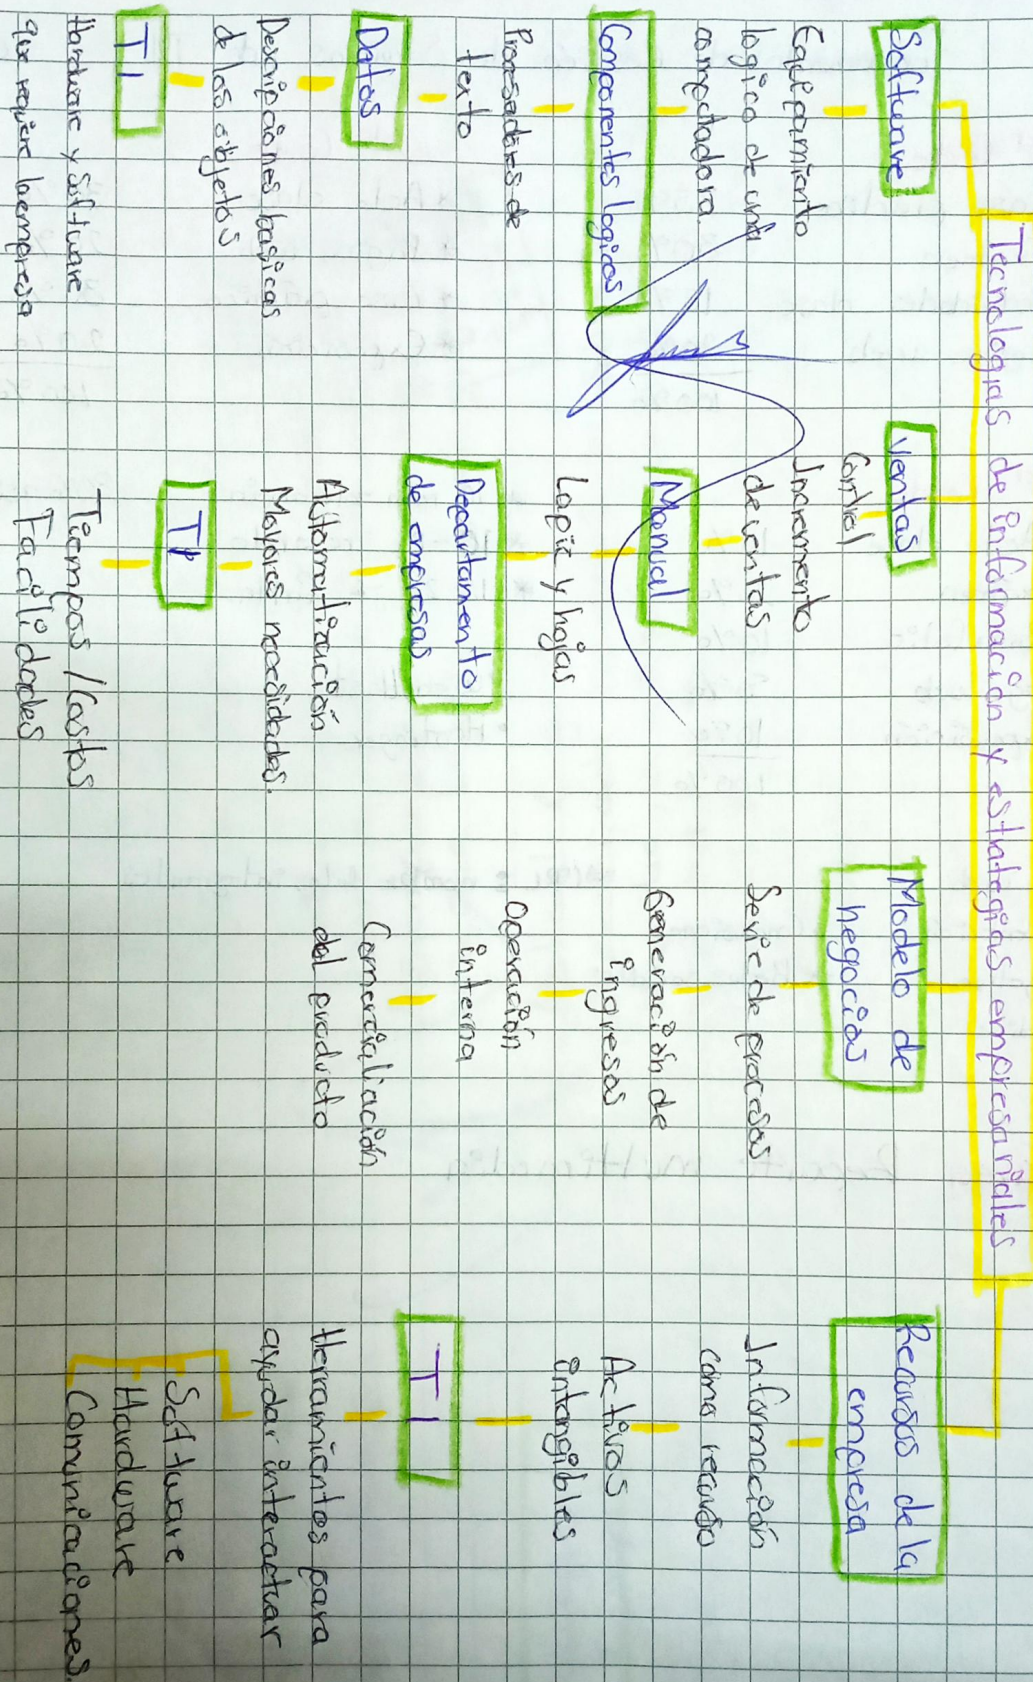 Tecnologias de información y estrategias empresariales
Software
Equipamiento
logico de una
computadora
Componentes logicos
Procesadores de
texto
Datos
Descripciones basicas
de los objetos
TI
Hardware y Software
que requiere la empresa
Ventas
Control
Incremento
de ventas
Manual
Lapiz y hojas
Departamento
de empresas
Automatización
Mayores necesidades.
TI
Tiempos / Costos
Facilidades
Modelo de
negocios
Serie de procesos
Generación de
ingresos
Operación
interna
Comercialiación
del producto
Recursos de la
empresa
Información
como recurso
Activos
intangibles
TI
Herramientas para
ayudar interactuar
Software
Hardware
Comunicaciones.